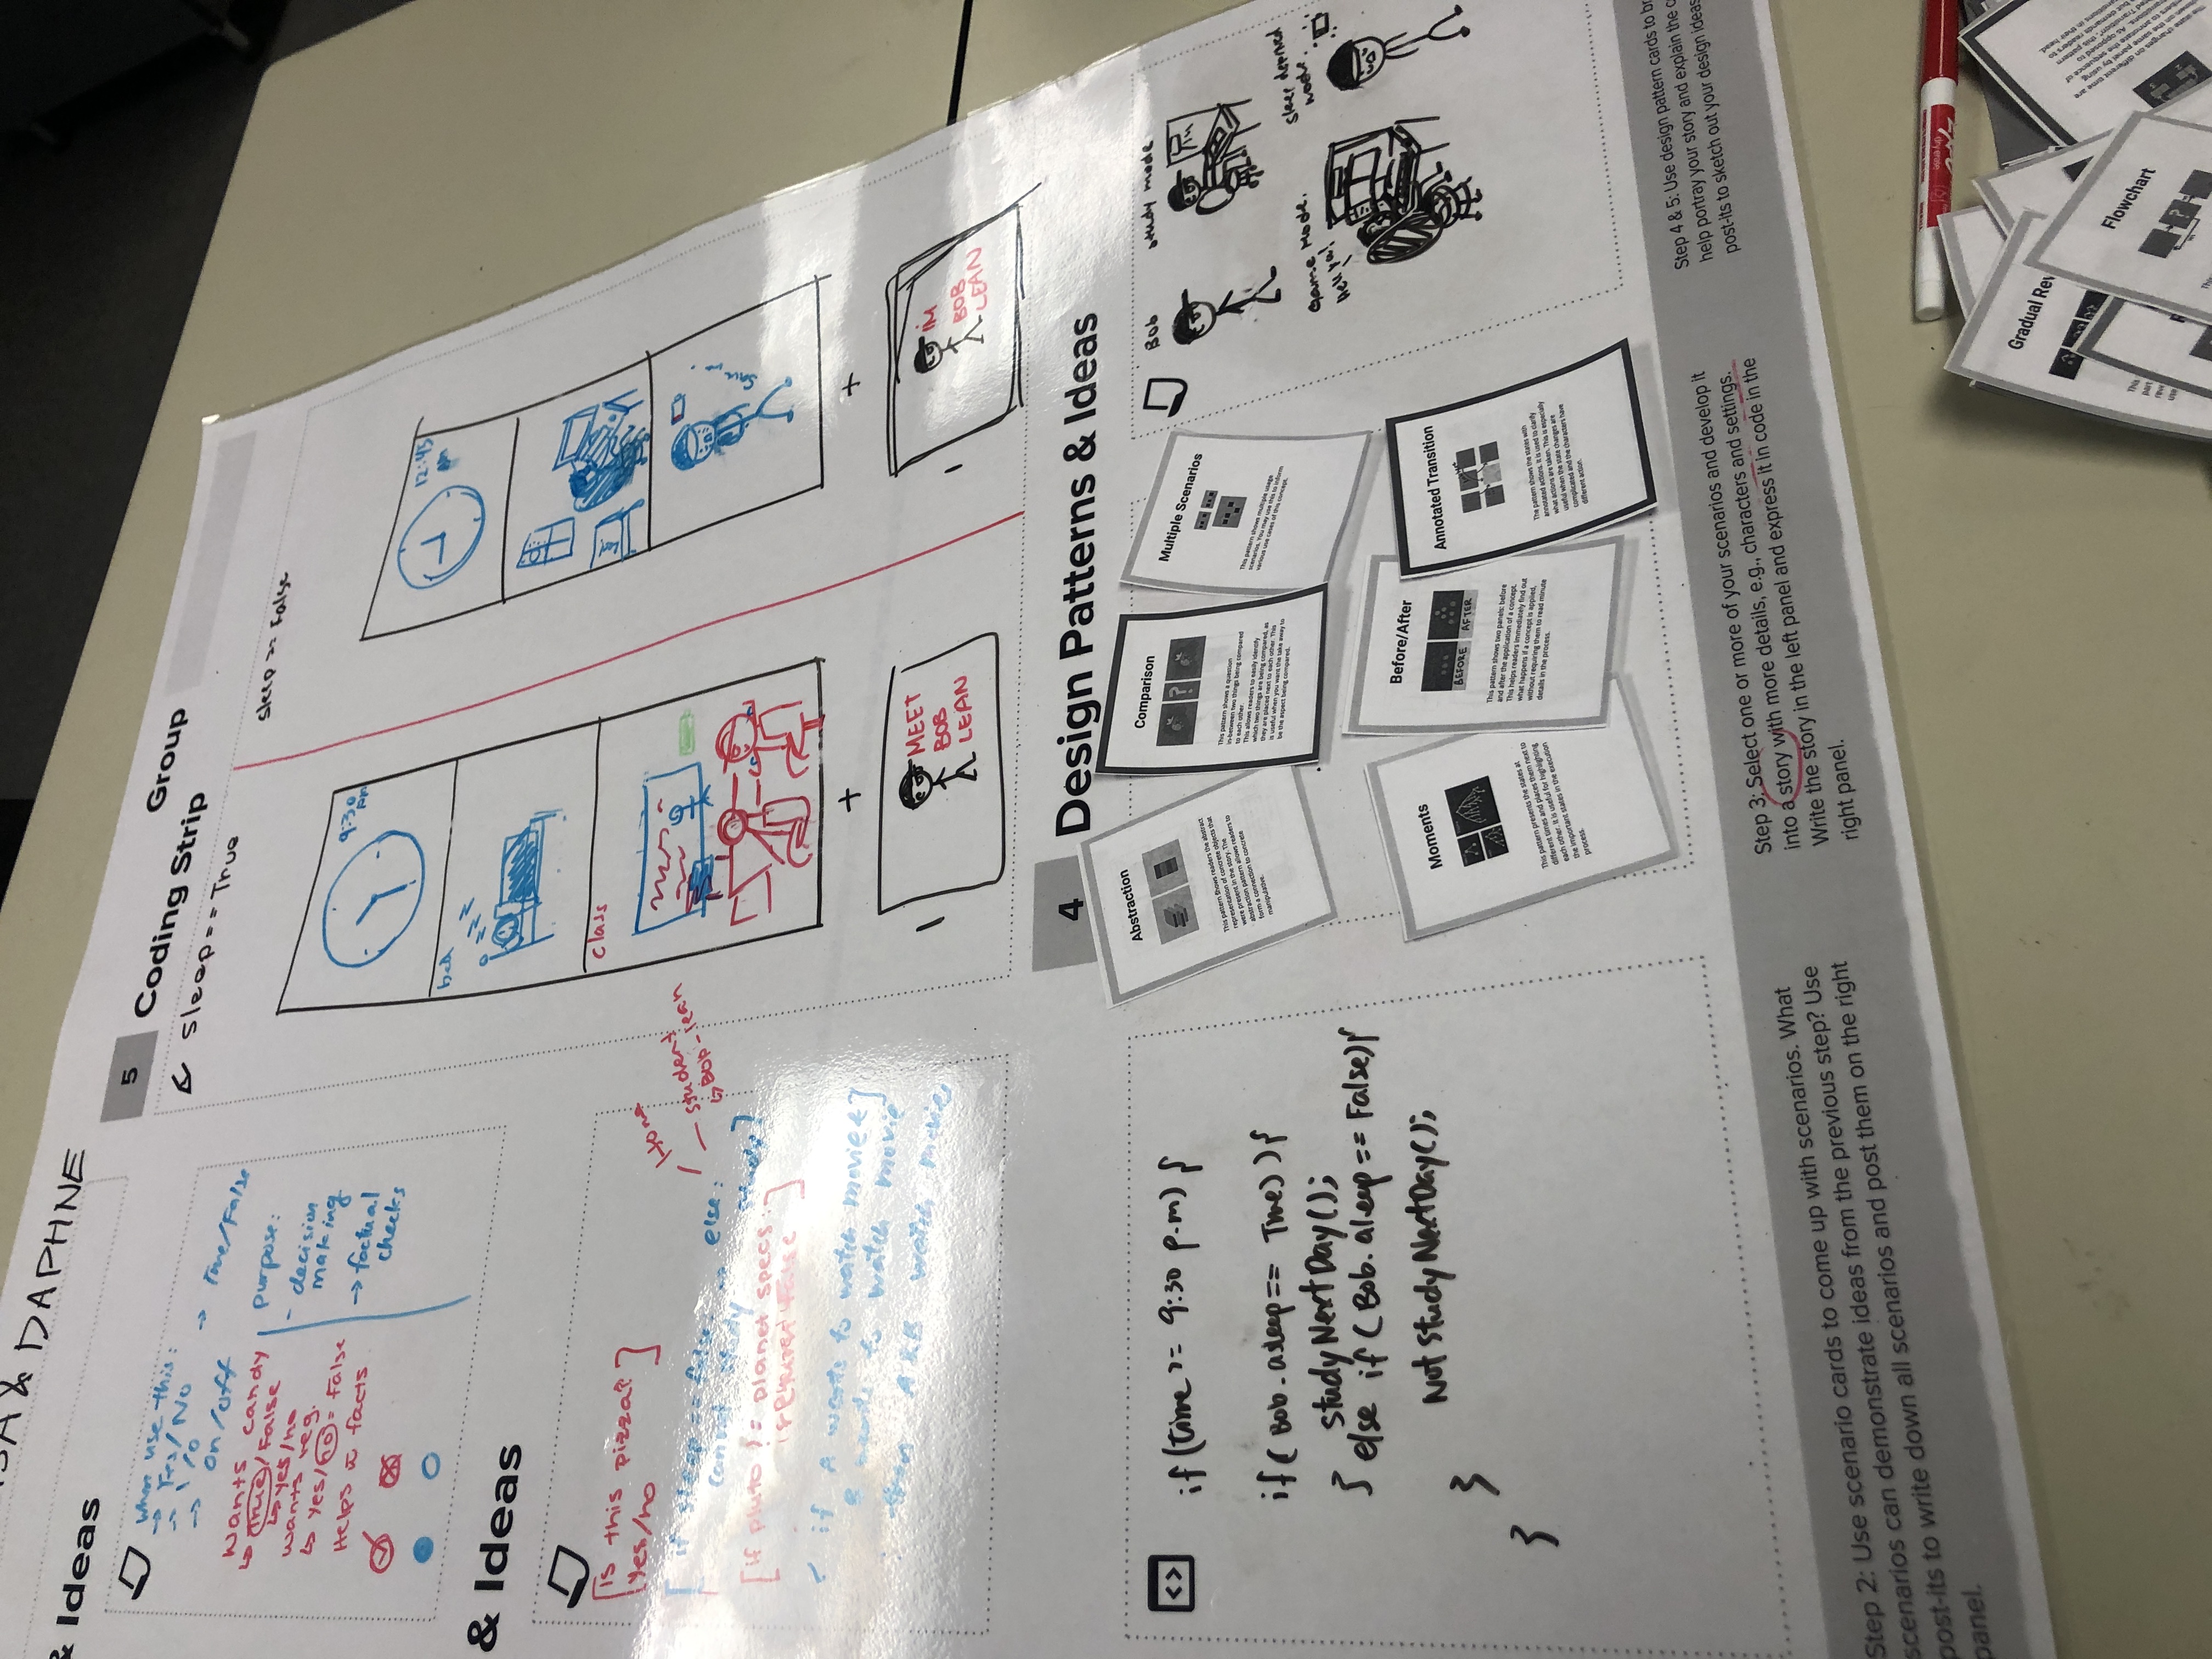 & DAPHNE
& Ideas
when use this:
→ Yes/No
→ 1/0
→ on/off
→ True/False
wants candy
↳ True/False
↳ yes/no
wants veg.
↳ yes/no = False
Helps facts
purpose:
- decision
making
→ factual
checks
& Ideas
[Is this pizza?]
Yes/no
[if sleep == false: else:
cannot study study]
Home
student
↳ BOB-lean
[if pluto != planet specs:]
if A wants to watch movie &
B wants to watch movie
then A & B watch movies
5
Coding Strip
Group
sleep == True
9:30
pm
bed
class
+
MEET
BOB
LEAN
sleep == False
12:45
am
+
IM
BOB
LEAN
<>
if (time >= 9:30 p.m) {
if ( Bob.asleep == True) ) {
studyNextDay();
} else if ( Bob.aleep == False) {
Not studyNextDay();
}
}
4
Design Patterns & Ideas
Abstraction
This pattern shows readers the abstract
representation of concrete objects that
were present in the story. The
abstraction pattern allows readers to
form a connection to concrete
manipulative.
Comparison
?
This pattern shows a question
in-between two things being compared
to each other.
This allows readers to easily identify
which two things are being compared, as
they are placed next to each other. This
is useful when you want the take away to
be the aspect being compared.
Multiple Scenarios
This pattern shows multiple usage
scenarios. You may use this to inform
various use cases of this concept.
Moments
This pattern presents the states at
different times and places them next to
each other. It is useful for highlighting
the important states in the execution
process.
Before/After
BEFORE
AFTER
This pattern shows two panels: before
and after the application of a concept.
This helps readers immediately find out
what happens if a concept is applied,
without requiring them to read minute
details in the process.
Annotated Transition
The pattern shows the states with
annotated actions. It is used to clarify
what actions are taken. This is especially
useful when the state changes are
complicated and the characters have
different action.
Bob
study mode
Game Mode.
Hell ya!
sleep deprived
mode.
Step 2: Use scenario cards to come up with scenarios. What
scenarios can demonstrate ideas from the previous step? Use
post-its to write down all scenarios and post them on the right
panel.
Step 3: Select one or more of your scenarios and develop it
into a story with more details, e.g., characters and settings.
Write the story in the left panel and express it in code in the
right panel.
Step 4 & 5: Use design pattern cards to
help portray your story and explain the
post-its to sketch out your design ideas
dry erase
Gradual
Flowchart
?